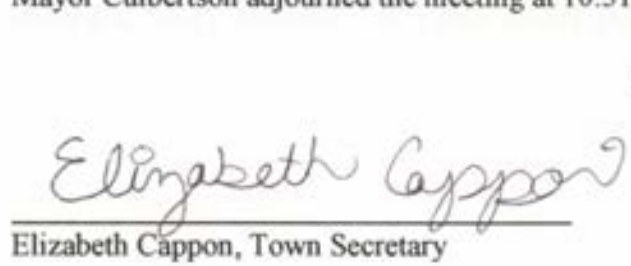 Mayor Culbertson adjourned the meeting at 10:31
Elizabeth Cappon
Elizabeth Cappon, Town Secretary